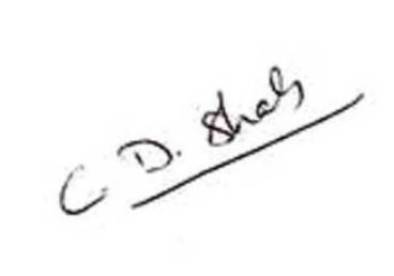 C. D. Shah